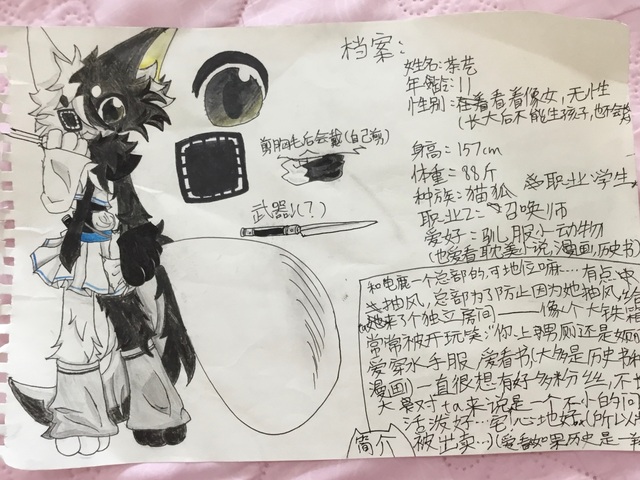 档案：
姓名：茶艺
年龄：11
性别：看着像女，无性
(长大后不能生孩子，也不会
剪胸毛后会戴(自己剪)
身高：157cm
体重：88斤
种族：猫狐
职业：学生
职业2：召唤师
爱好：驯服小动物
(也爱看耽美小说，漫画，历史书)
武器(？)
和电鹿一个总部的，地位嘛…有点中
抽风，总部为了防止因为她抽风，
她来了个独立房间——像个大铁箱
常常被开玩笑："你上男厕还是女厕
爱穿水手服，爱看书(大多是历史书
漫画)一直很想有好多粉丝，不
大对ta来说是一个不小的问
活泼好…心地好(所以
被出卖…)(爱看如果历史是一
简介